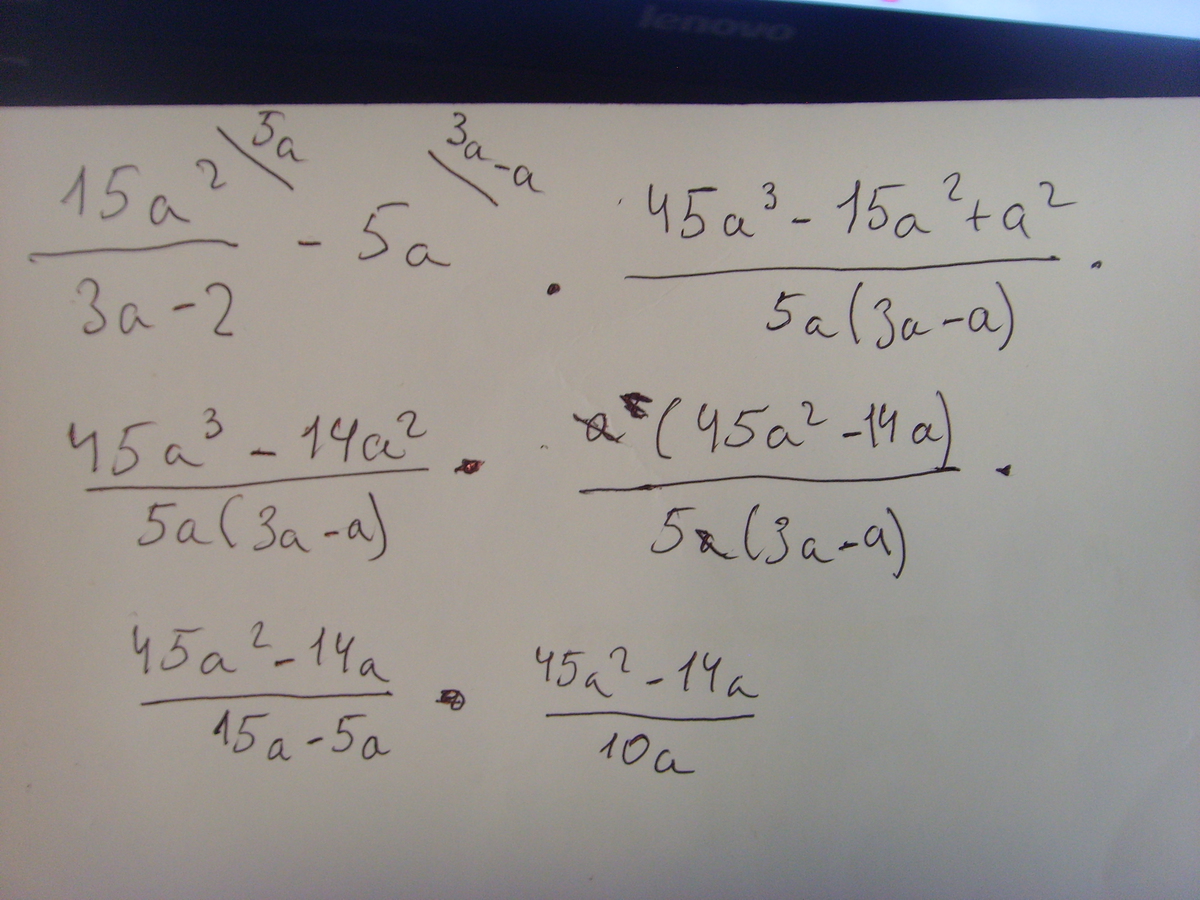 lenovo
15a² \5a / (3a-2) - 5a \3a-a · (45a³ - 15a² + a²) / (5a(3a-a)) ·
(45a³ - 14a²) / (5a(3a-a)) · (45a² - 14a) / (5a(3a-a)) ·
(45a² - 14a) / (15a - 5a) · (45a² - 14a) / (10a)